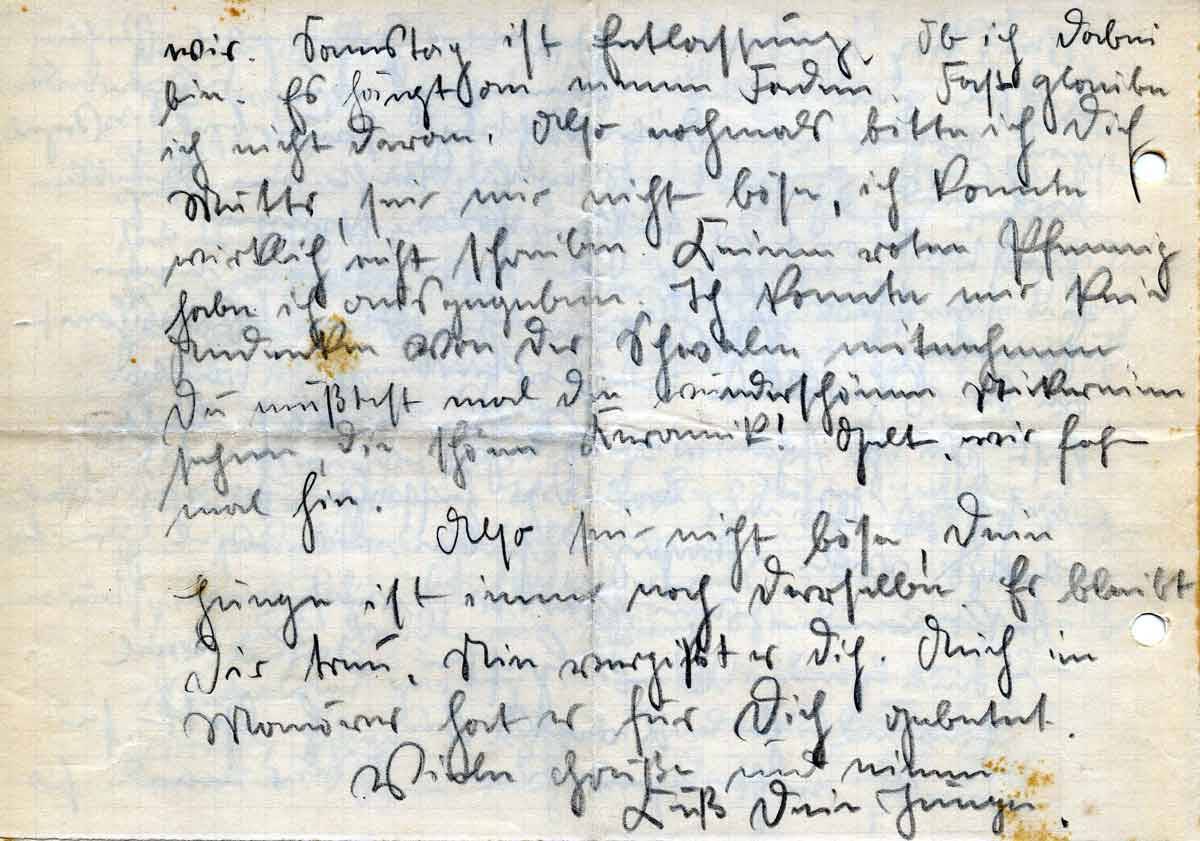 wir. Samstag ist Entlassung. Ob ich dabei
bin. Es hängt an einem Faden. Fast glaube
ich nicht daran. Also nochmals bitte ich Dich
Mutter, sei mir nicht böse, ich konnte
wirklich nicht schreiben. Keinen roten Pfennig
habe ich ausgegeben. Ich konnte mir kein
Andenken von der Schwalm mitnehmen
Du müßtest mal die wunderschönen Stickereien
sehen, die schöne Keramik! Gelt, wir fahren
mal hin.
Also sei nicht böse, Dein
Junge ist immer noch derselbe. Er bleibt
Dir treu. Nie vergißt er Dich. Auch im
Manöver hat er für Dich gebetet.
Viele Grüße und einen
Kuß Dein Junge.